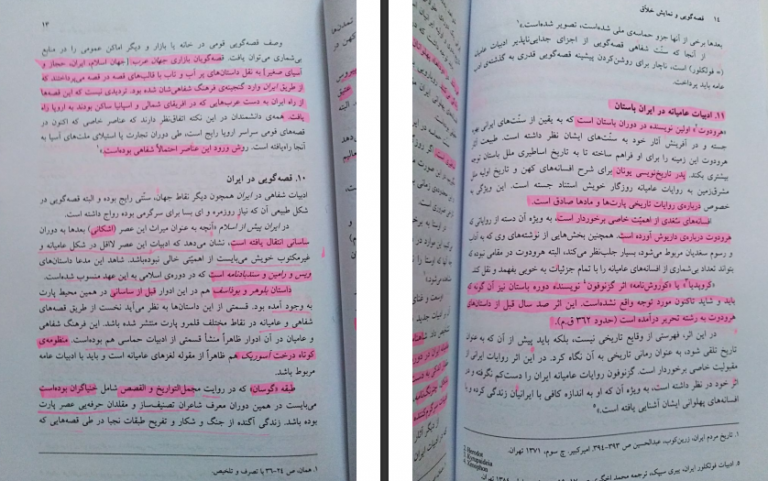 ۱۳
وصف قصه‌گویی قومی در خانه یا بازار و دیگر اماکن عمومی را در منابع
بی‌شماری می‌توان یافت. قصه‌گویان بازاری جهان عرب [جهان اسلام، ایران، حجاز و
آسیای صغیر] به نقل داستان‌های پر آب و تاب با قالب‌های قصه در قصه می‌پرداختند که
از طریق ایران وارد گنجینه‌ی فرهنگ شفاهی‌شان شده بود. تردیدی نیست که این قصه‌ها
از راه ایران به دست عرب‌هایی که در افریقای شمالی و اسپانیا ساکن بودند به اروپا راه
یافت. همه‌ی دانشمندان در این نکته اتفاق‌نظر دارند که عناصر خاصی که اکنون در
قصه‌های قومی سراسر اروپا رایج است، طی دوران تجارت یا استیلای ملت‌های آسیا به
آنجا راه‌یافته است. روش ورود این عناصر احتمالاً شفاهی بوده‌است.
۱۰. قصه‌گویی در ایران
ادبیات شفاهی در ایران همچون دیگر نقاط جهان، سنّتی رایج بوده و البته قصه‌گویی در
شکل طبیعی آن که نیاز روزمره و ای بسا برای سرگرمی بوده رواج داشته است.
در ایران پیش از اسلام «آنچه به عنوان میراث این عصر (اشکانی) بعدها به دوران
ساسانی انتقال یافته است، نشان می‌دهد که ادبیات این عصر لااقل در شکل عامیانه و
غیرمکتوب خویش می‌بایست از اهمیّتی خالی نبوده‌باشد. شاهد این مدعا داستان‌های
ویس و رامین و سندبادنامه است که در دوره‌ی اسلامی به این عهد منسوب شده‌است.
داستان بلوهر و بوذاسف هم در این ادوار قبل از ساسانی در همین محیط پارت
به وجود آمده بود. قسمتی از این داستان‌ها به نظر می‌آید نخست از طریق قصه‌های
شفاهی و عامیانه در نقاط مختلف قلمرو پارت منتشر شده باشد. این فرهنگ شفاهی
و عامیان در آن ادوار ظاهراً منشأ قسمتی از ادبیات حماسی هم بوده‌است. منظومه‌ی
کوتاه درخت آسوریک هم ظاهراً از مقوله لغزهای عامیانه است و باید با ادبیات عامه
مربوط باشد.
طبقه «گوسان» که در روایت مجمل‌التواریخ و القصص شامل خنیاگران بوده‌است
می‌بایست در همین دوران معرف شاعران تصنیف‌ساز و مقلدان حرفه‌یی عصر پارت
بوده باشد. زندگی آکنده از جنگ و شکار و تفریح طبقات نجبا در طی قصه‌هایی که
۱. همان، ص ۲۴-۳۶ با تصرف و تلخیص.
۱۴ قصه‌گویی و نمایش خلاّق
بعدها برخی از آنها جزو حماسه‌ی ملی شده‌است، تصویر شده‌است.»
از آنجا که سنّت شفاهی قصه‌گویی از اجزای جدایی‌ناپذیر ادبیات عامیانه
(= فولکلور) است، ناچار برای روشن‌کردن پیشینه قصه‌گویی قدری به گذشته‌ی ادب
عامه باید پرداخت.
۱۱. ادبیات عامیانه در ایران باستان
«هرودوت» اولین نویسنده در دوران باستان است که به یقین از سنّت‌های ایرانی بهره
جسته و در آفرینش آثار خود به سنّت‌های ایشان نظر داشته است. طبیعت آثار
هرودوت این زمینه را برای او فراهم ساخته تا به تاریخ اساطیری ملل باستان توجه
بیشتری بکند. پدر تاریخ‌نویسی یونان برای شرح افسانه‌های کهن و تاریخ اولیه ملل
مشرق‌زمین به روایات عامیانه روزگار خویش استناد جسته است. این ویژگی به
خصوص درباره‌ی روایات تاریخی پارت‌ها و مادها صادق است.
افسانه‌های سُغدی از اهمیّت خاصی برخوردار است، به ویژه آن دسته از روایاتی که
هرودوت درباره‌ی داریوش آورده است. همچنین بخش‌هایی از نوشته‌های وی که به آداب
و رسوم سغدیان مربوط می‌شود، بسیار جلب‌نظر می‌کند، البته هرودوت در مقامی نبوده که
بتواند تعداد بی‌شماری از افسانه‌های عامیانه را با تمام جزئیات به خوبی بفهمد و نقل کند.
«کروپدیا» یا «کوروش‌نامه» اثر گزنوفون نویسنده دوره باستان نیز آن گونه که
باید و شاید تاکنون مورد توجه واقع نشده‌است. این اثر صد سال قبل از داستان‌های
هرودوت به رشته تحریر درآمده است (حدود ۳۶۲ ق.م).
در این اثر، فهرستی از وقایع تاریخی نیست، بلکه باید پیش از آن که به عنوان
تاریخ تلقی شود، به عنوان رمانی تاریخی به آن نگاه کرد. در این اثر روایات ایرانی از
مقبولیت خاصی برخوردار است. گزنوفون روایات عامیانه ایران را دست‌کم نگرفته و در
اثر خود در نظر داشته است، به ویژه آن که او به اندازه کافی با ایرانیان زندگی کرده و با
افسانه‌های پهلوانی ایشان آشنایی یافته است.»
۱. تاریخ مردم ایران، زرین‌کوب، عبدالحسین ص ۳۹۳-۳۹۴، امیرکبیر. چ سوم، ۱۳۷۱ تهران.
Herodot
Kyrupaideia
Xenophon